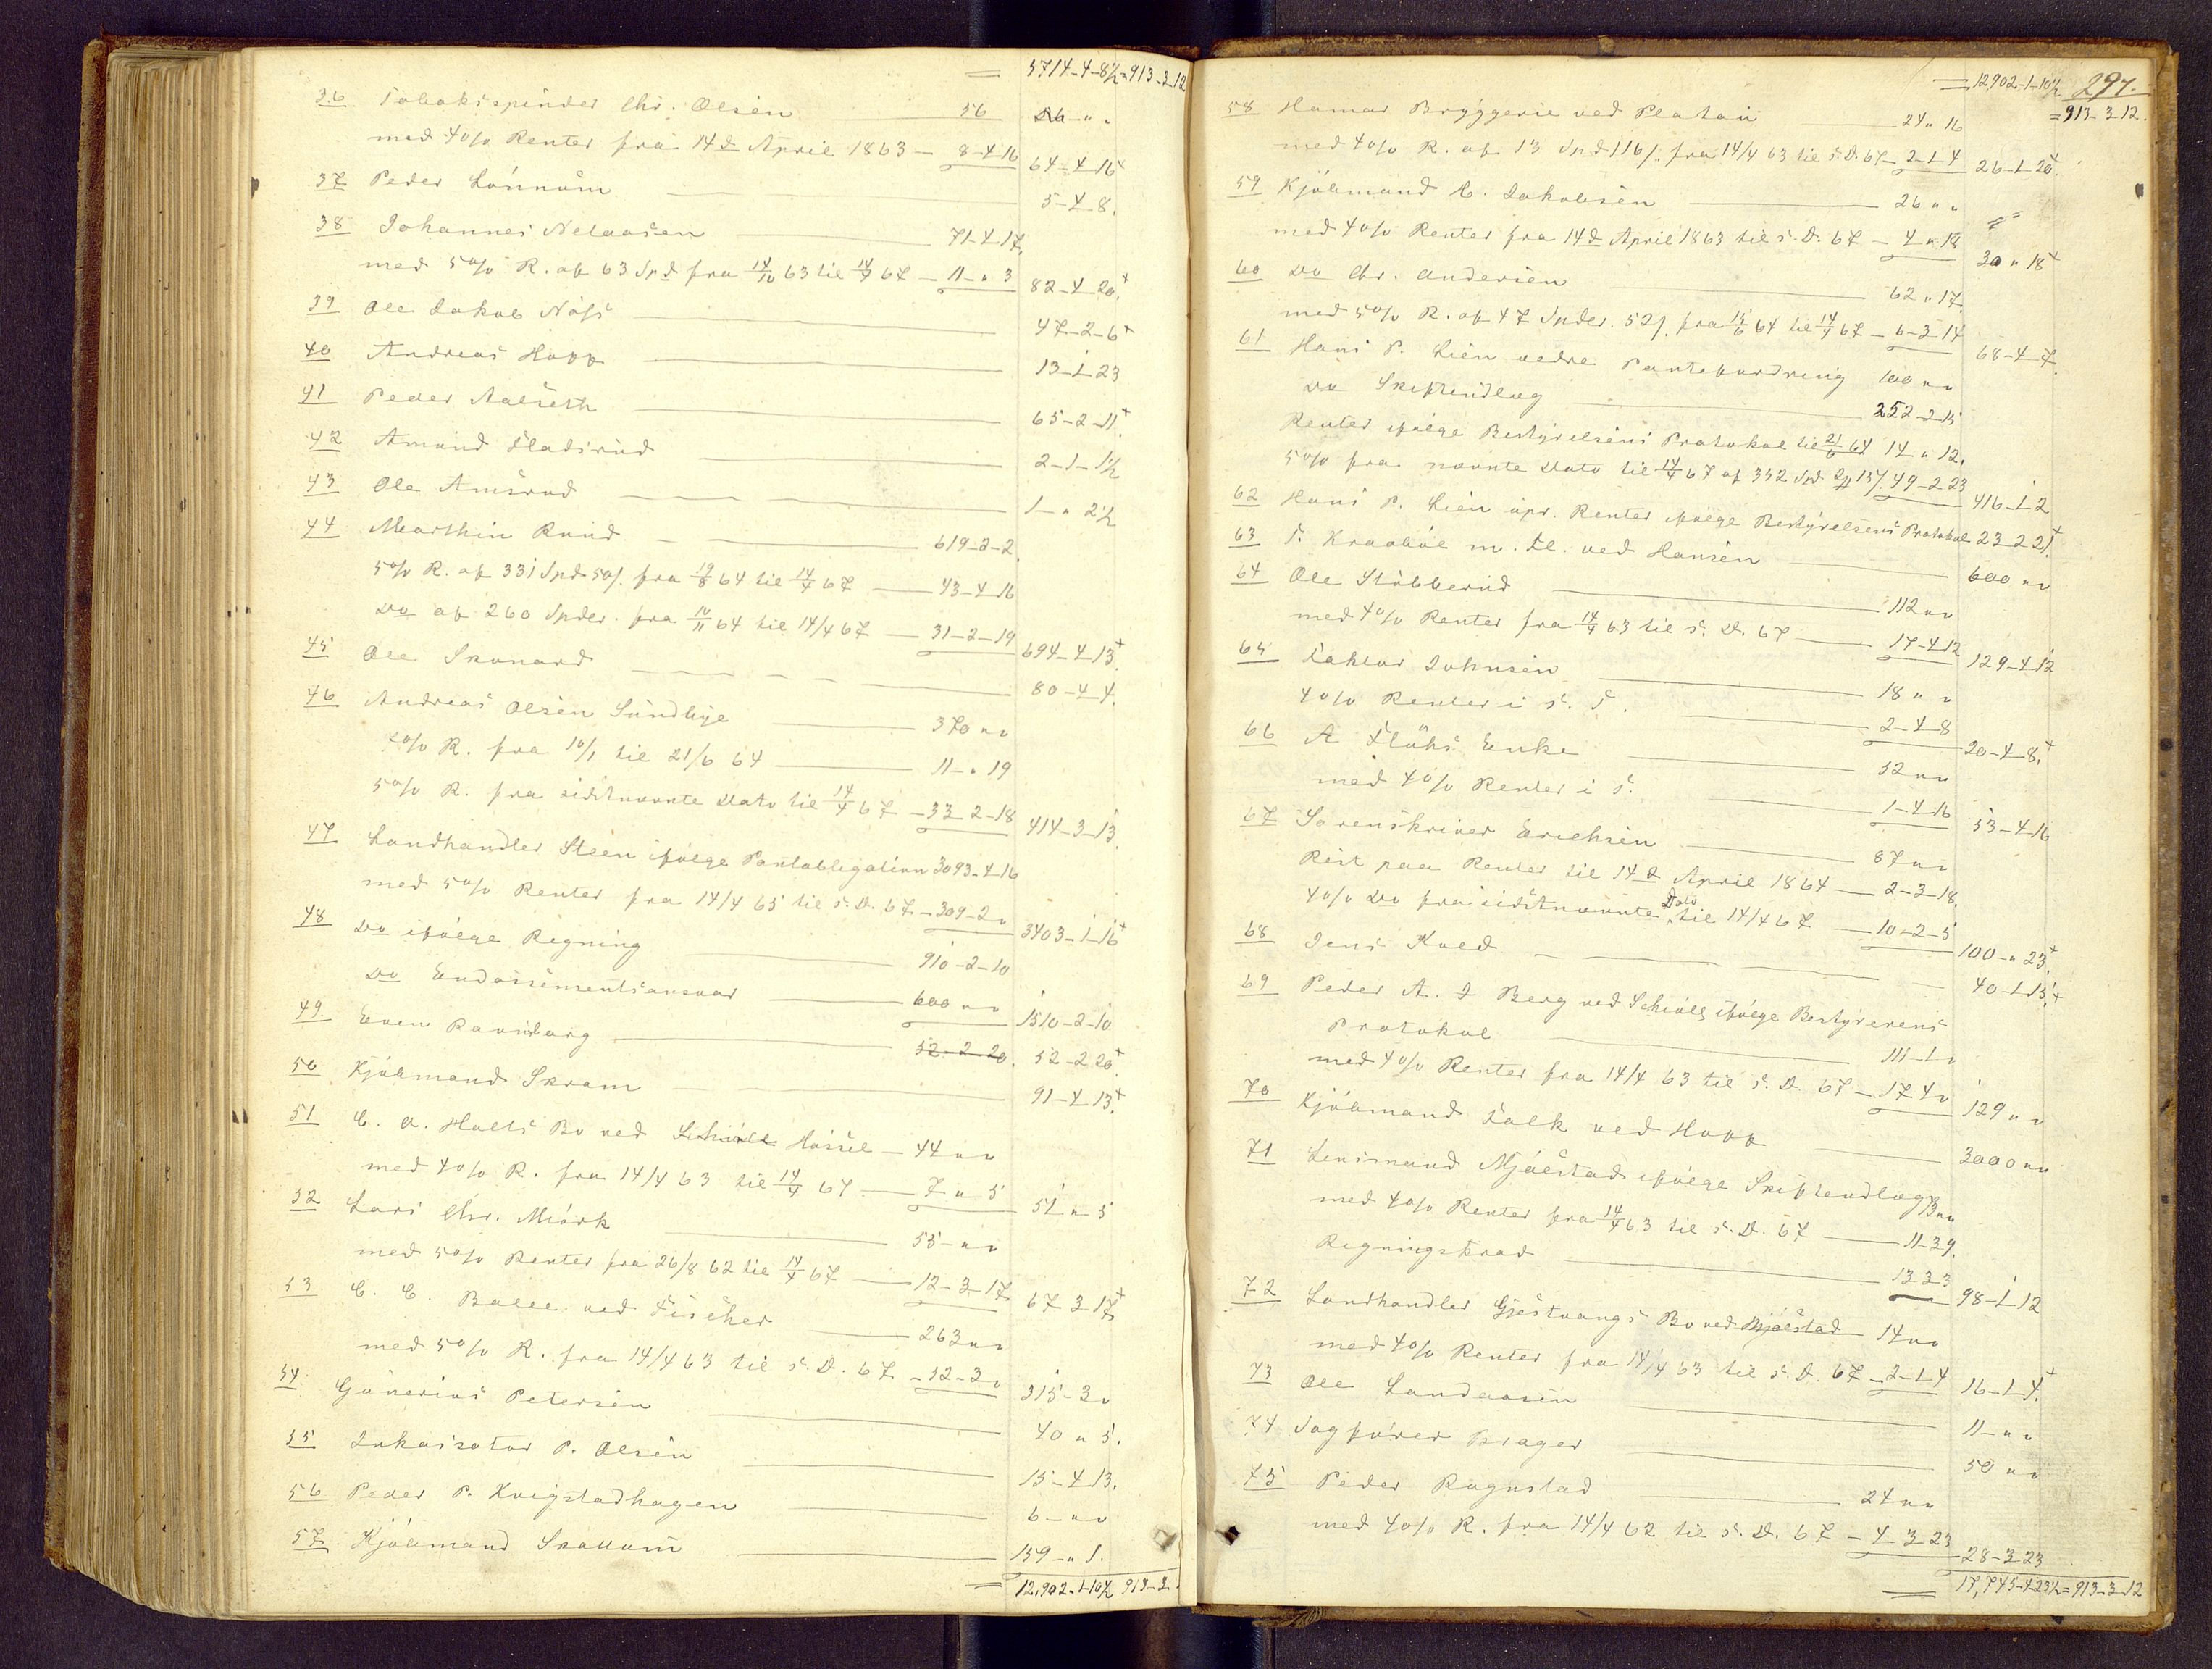 = 5714-4-8½ = 913-3-12
36 Tobaksspinder Chr. Olsen — 56
med 4% Renter fra 14d April 1863 — 8-4-16 64-4-16
37 Peder Lönnüm — 5-4-8.
38 Johannes Nelaasen — 71-4-17
med 5% R. af 63 Spd fra 14/10 63 til 14/4 67 — 11-"3 82-4-20.
39 Ole Jakob Näss — 47-2-6
40 Andreas Hopp — 13-1-23
41 Peder Aalseth — 65-2-11.
42 Amund Fladsrud — 2-1-1½
43 Ole Amsrud — 1-"2½
44 Marthin Ruud — 619-2-2
5% R. af 331 Spd 50 s. fra 19/8 64 til 14/4 67 — 43-4-16
Do af 260 Spdlr. fra 10/11 64 til 14/4 67 — 31-2-19 694-4-13.
45 Ole Skonard — 80-4-4.
46 Andreas Olsen Sundbye — 370 " "
R. fra 10/1 til 21/6 64 — 11-"19
5% R. fra sidstnævnte Dato til 14/4 67 — 33-2-18 414-3-13
47 Landhandler Steen ifølge Pantobligation 3093-4-16
med 5% Renter fra 14/4 65 til s. D. 67 — 309-2" 3403-1-16
48 Do ifølge Regning — 910-2-10
Do Endossementsansvar — 600 " " 1510-2-10
49. Even — 52-2-20. 52-2-20.
50 Kjöbmand Skram — 91-4-13.
51 C. A. Holls Bo ved Hassel — 44 " "
med 4% R. fra 14/4 63 til 14/4 67 — 7 " 5 51 " 5
52 Lars Chr. Mörk — 55 - " "
med 5% Renter fra 26/8 62 til 14/4 67 — 12-3-17 67-3-17
53 C. C. Balle ved Fischer — 263 " "
med 5% R. fra 14/4 63 til s. D. 67 — 52-3" 315-3"
54. Günerius Petersen — 40 " 5.
55 Inkassator P. Olsen — 15-4-13.
56 Peder P. Kvigstadhagen — 6 - " "
57. Kjöbmand Skallum — 159-"1.
= 12,902-1-10½ 913-3-

297.
= 12,902-1-10½
= 913-3-12.
58 Hamar Bryggerie ved Platou — 24 " 16
med 4% R. af 13 Spd 116 s. fra 14/4 63 til s. D. 67 — 2-1-4 26-1-20.
59 Kjöbmand C. Jakobsen — 26 " "
med 4% Renter fra 14d April 1863 til s. D. 67 — 4 " 18 30 " 18
60 Do Chr. Andersen — 62 " 17.
med 5% R. af 47 Spdlr. 52 s. fra 15/6 64 til 14/4 67 — 6-3-14 68-4-7.
61 Hans P. Lien vedr. Pantefordring 100 " "
Do Skifteudlæg — 252-2-15
Renter ifølge Bestyrelsens Protokol til 21/6 64 14 " 12.
5% fra nævnte Dato til 14/4 67 af 352 Spd 2 15 s. 49-2-23 416-1-2
62 Hans P. Lien opr. Renter ifølge Bestyrelsens Protokol 23-2-21.
63 T. Kraaböl m. fl. ved Hansen — 600 " "
64 Ole Stübberud — 112 " "
med 4% Renter fra 14/4 63 til s. D. 67 — 17-4-12 129-4-12
65 Faktor Johnsen — 18 " "
4% Renter i s. T. — 2-4-8 20-4-8.
66 A Enke — 52 " "
med 4% Renter i s. — 1-4-16 53-4-16
67 Sorenskriver Erichsen — 87 " "
Rest paa Renter til 14d April 1864 — 2-3-18.
4% Do fra sidstnævnte Dato til 14/4 67 — 10-2-5 100-"23.
68 Jens Kved — 40-1-15.
69 Peder A. J Berg ved Schiöll ifølge Bestyrerens
Protokol — 111-1"
med 4% Renter fra 14/4 63 til s. D. 67 — 17-4" 129 " "
70 Kjöbmand Falk ved Hopp — 3000 " "
71 Lensmand Mjölstad ifølge Skifteudlæg 73 " "
med 4% Renter fra 14/4 63 til s. D. 67 — 11-3-9.
Regningskrav — 13-3-3 98-1-12
72 Landhandler Gjestvangs Bo ved Mjölstad 14 " "
med 4% Renter fra 14/4 63 til s. D. 67 — 2-1-4 16-1-4.
73 Ole Landaasen — 11 - " "
74 Sagförer Prager — 50 " "
75 Peder Rognstad — 24 " "
med 4% R. fra 14/4 62 til s. D. 67 — 4-3-23 28-3-23
= 17,745-4-23½ = 913-3-12